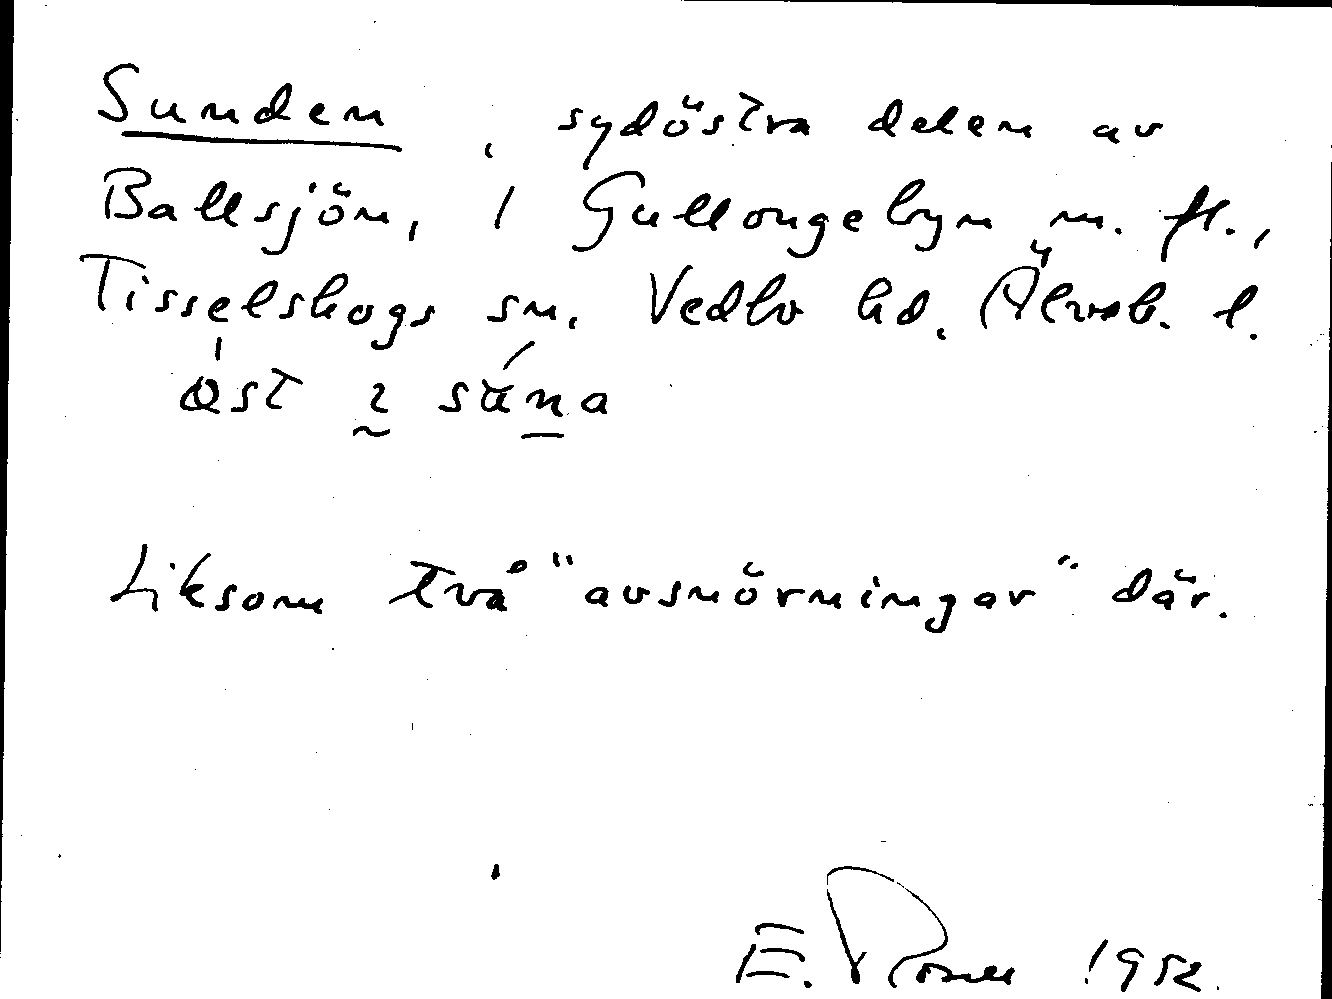 Sunden, sydöstra delen av
Ballsjön, i Gullongebyn m. fl.,
Tisselskogs sn. Vedbo hd. Älvsb. l.
öst i sũna
Liksom två "avsnörningar" där.
E. 1952.